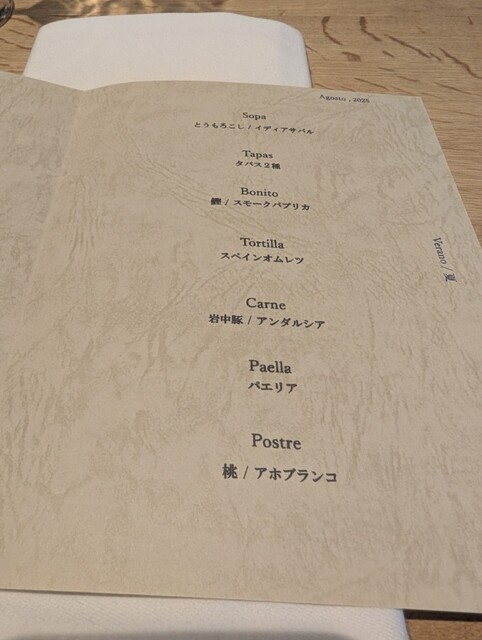 Agosto , 2025
Sopa
とうもろこし / イディアサバル
Tapas
タパス２種
Bonito
鰹 / スモークパプリカ
Tortilla
スペインオムレツ
Carne
岩中豚 / アンダルシア
Paella
パエリア
Postre
桃 / アホブランコ
Verano / 夏